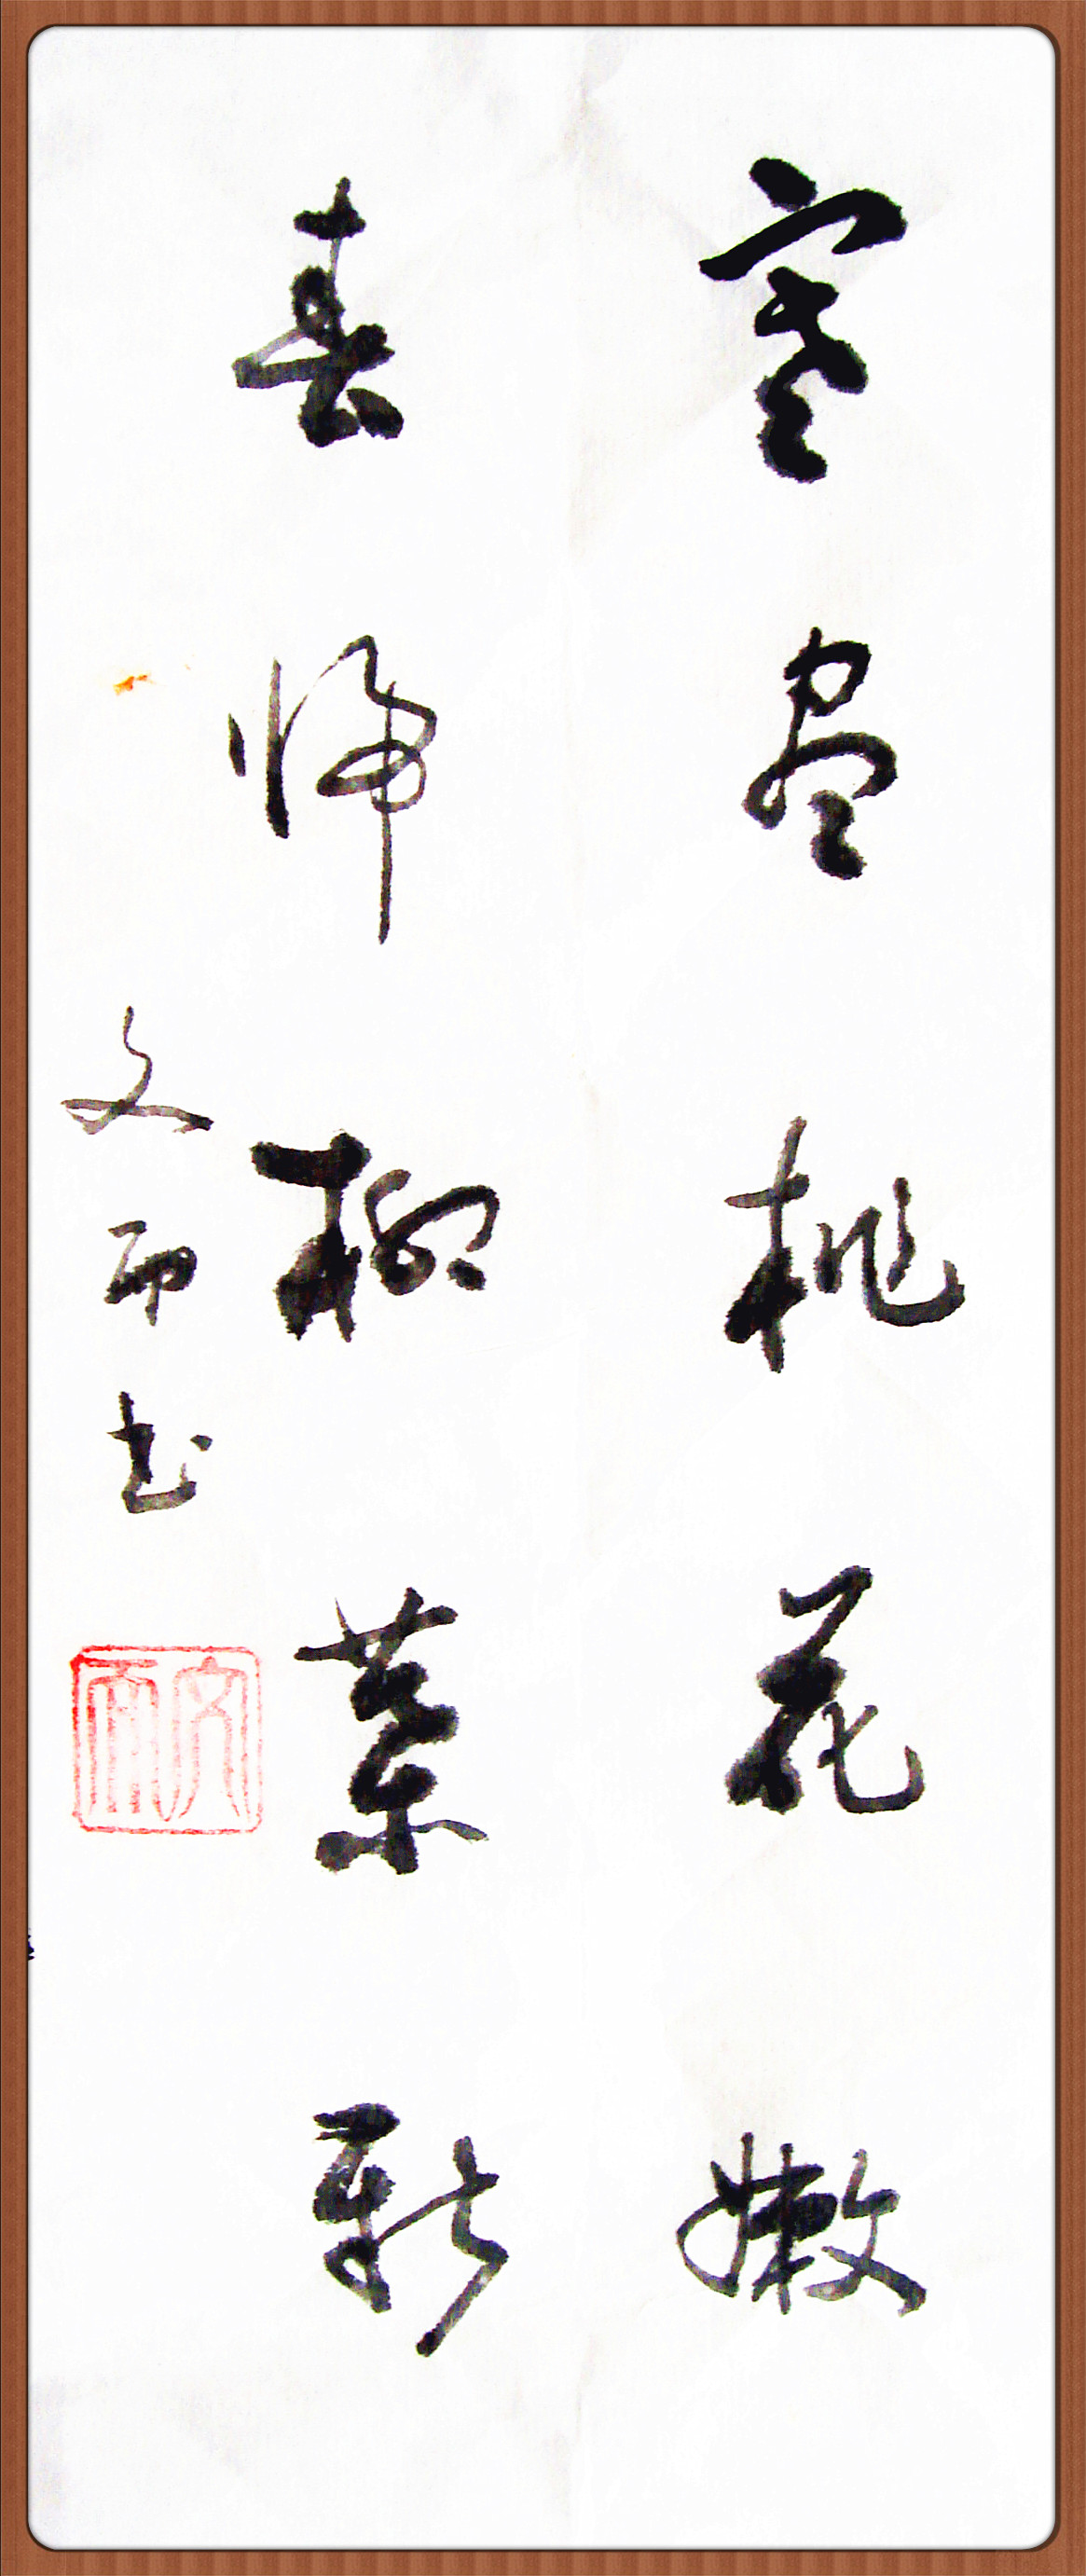 寒尽桃花嫩
春归柳叶新
文而书
文而